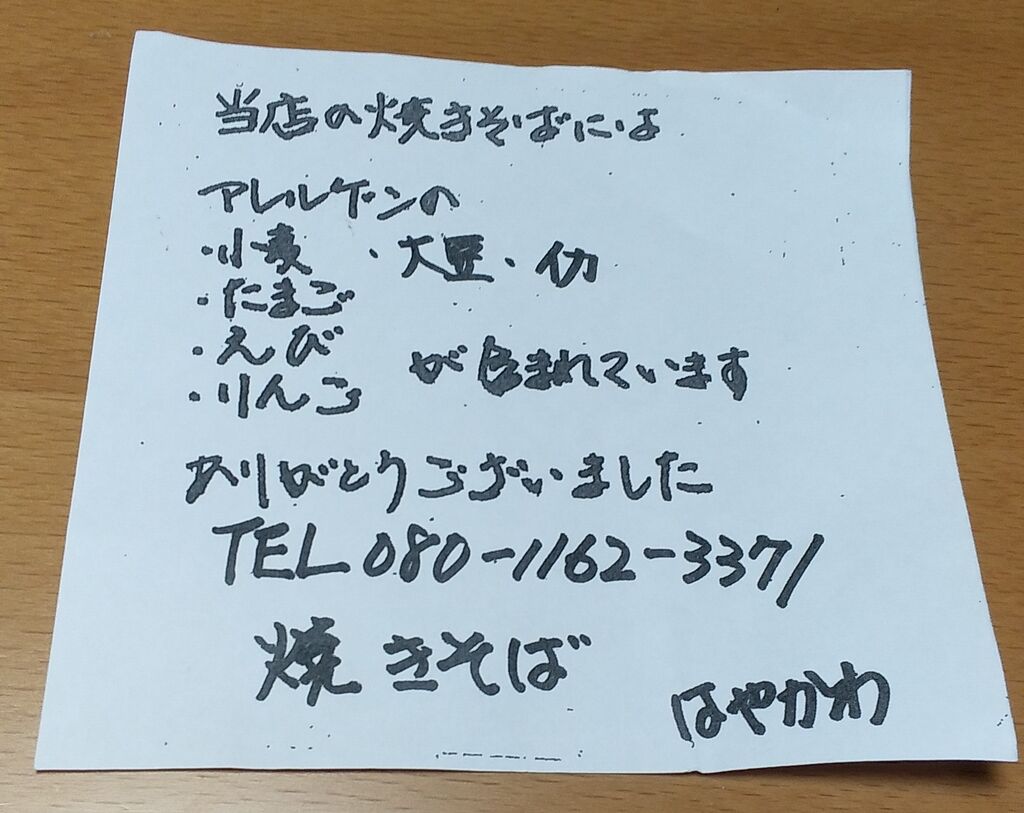 当店の焼きそばには
アレルゲンの
・小麦 ・大豆・イカ
・たまご
・えび
・りんご が含まれています
ありがとうございました
TEL 080-1162-3371
焼きそば
はやかわ